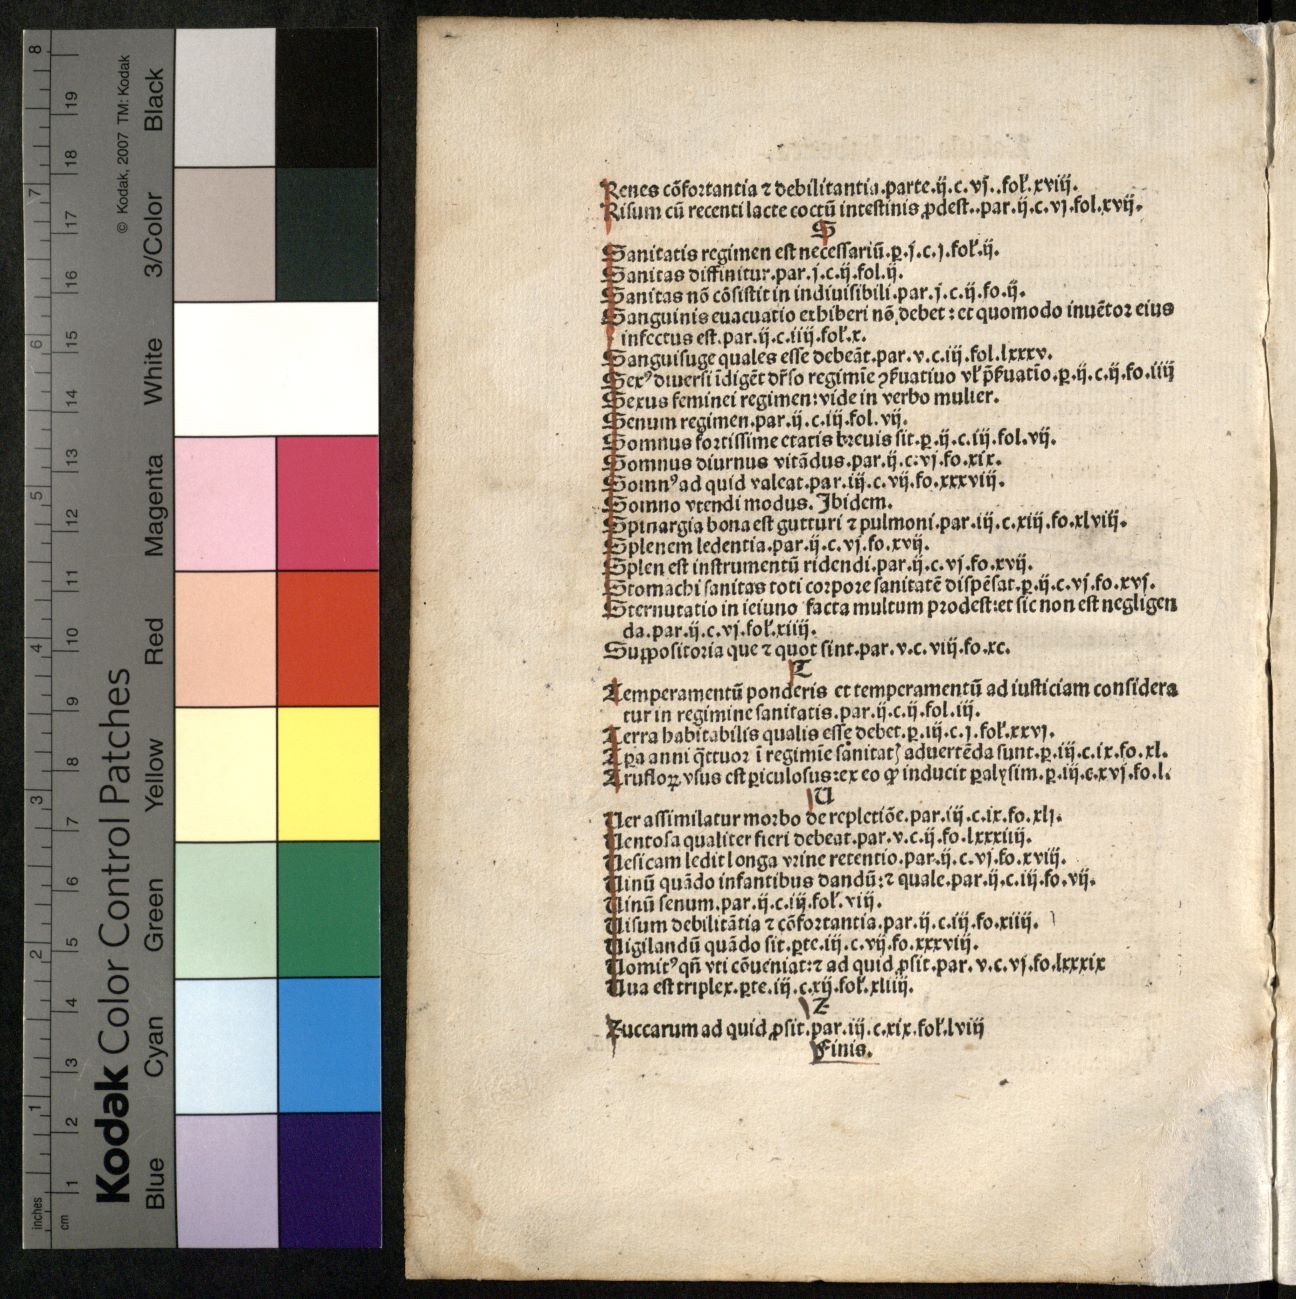 Renes cõfortantia ⁊ debilitantia.parte.ij.c.vj..fol̃.xviij.
Risum cũ recenti lacte coctũ intestinis ꝓdest..par.ij.c.vj.fol.xvij.
S
Sanitatis regimen est necessariũ.p̲.j.c.j.fol̃.ij.
Sanitas diffinitur.par.j.c.ij.fol.ij.
Sanitas nõ cõsistit in indiuisibili.par.j.c.ij.fo.ij.
Sanguinis euacuatio exhiberi nõ debet : et quomodo inuẽtor eius
infectus est.par.ij.c.iiij.fol̃.x.
Sanguisuge quales esse debeãt.par.v.c.iij.fol.lxxxv.
Sexꝰ diuersi ĩdigẽt dr̃so regimĩe ꝯẽuatiuo vl̃ p̃ẽuatĩo.p̲.ij.c.ij.fo.iiij
Sexus feminei regimen:vide in verbo mulier.
Senum regimen.par.ij.c.iij.fol.vij.
Somnus fortissime etatis breuis sit.p̲.ij.c.iij.fol.vij.
Somnus diurnus vitãdus.par.ij.c.vj.fo.xix.
Somnꝰ ad quid valeat.par.iij.c.vij.fo.xxxviij.
Somno vtendi modus. Ibidem.
Spinargia bona est gutturi ⁊ pulmoni.par.iij.c.xiij.fo.xlviij.
Splenem ledentia.par.ij.c.vj.fo.xvij.
Splen est instrumentũ ridendi.par.ij.c.vj.fo.xvij.
Stomachi sanitas toti corpore sanitatẽ dispẽsat.p̲.ij.c.vj.fo.xvj.
Sternutatio in ieiuno facta multum prodest:et sic non est negligen
da.par.ij.c.vj.fol̃.xiiij.
Suppositoria que ⁊ quot sint.par.v.c.viij.fo.xc.
T
Temperamentũ ponderis et temperamentũ ad iusticiam considera
tur in regimine sanitatis.par.ij.c.ij.fol.iij.
Terra habitabilis qualis esse debet.p̲.iij.c.j.fol̃.xxvj.
Tꝑa anni q̃ttuor ĩ regimĩe sanitatꝭ aduertẽda sunt.p̲.iij.c.ix.fo.xl.
Trufloꝝ vsus est ꝑiculosus:ex eo ꝙ inducit ꝑalysim.p̲.iij.c.xvj.fo.l.
U
Uer assimilatur morbo de repletiõe.par.iij.c.ix.fo.xlj.
Uentosa qualiter fieri debeat.par.v.c.ij.fo.lxxxiiij.
Uesicam ledit longa vrine retentio.par.ij.c.vj.fo.xviij.
Uinũ quãdo infantibus dandũ:⁊ quale.par.ij.c.iij.fo.vij.
Uinũ senum.par.ij.c.iij.fol̃.viij.
Uisum debilitãtia ⁊ cõfortantia.par.ij.c.iij.fo.xiiij.
Uigilandũ quãdo sit.ꝑte.iij.c.vij.fo.xxxviij.
Uomitꝰ qñ vti cõueniat:⁊ ad quid ꝓsit.par.v.c.vj.fo.lxxxix
Uua est triplex.ꝑte.iij.c.xij.fol̃.xliiij.
Z
Zuccarum ad quid ꝓsit.par.iij.c.xix.fol̃.lviij
Finis.
Kodak Color Control Patches
© Kodak, 2007 TM: Kodak
Blue Cyan Green Yellow Red Magenta White 3/Color Black
inches 1 2 3 4 5 6 7 8
cm 1 2 3 4 5 6 7 8 9 10 11 12 13 14 15 16 17 18 19